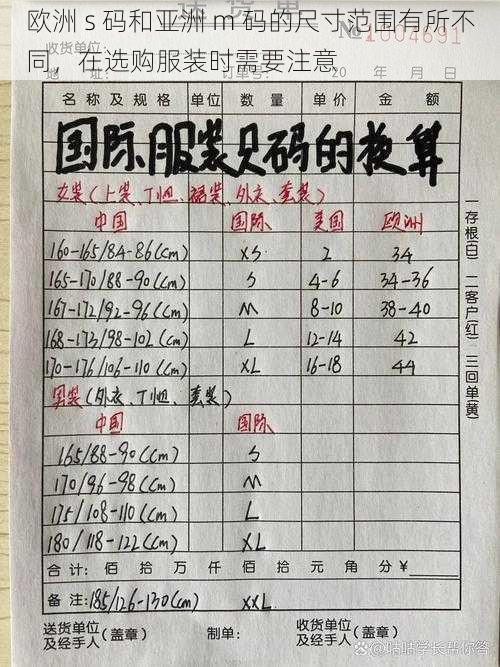 欧洲 s 码和亚洲 m 码的尺寸范围有所不
同，在选购服装时需要注意
1004691
20 年 月 日
名称及规格 单位 数量 单价 金额
国际服装尺码的换算
女装(上装、T恤、裙装、外衣、套装)
中国 国际 美国 欧洲
160-165/84-86(cm) XS 2 34
165-170/88-90(cm) S 4-6 34-36
167-172/92-96(cm) M 8-10 38-40
168-173/98-102(cm) L 12-14 42
170-176/106-110(cm) XL 16-18 44
男装(外衣、T恤、套装)
中国 国际
165/88-90(cm) S
170/96-98(cm) M
175/108-110(cm) L
180/118-122(cm) XL
合计: 佰 拾 万 仟 佰 拾 元 角 分 ¥
备注:185/126-130(cm) XXL
送货单位及经手人(盖章) 制单: 收货单位及经手人(盖章)
一存根(白) 二客户(红) 三回单(黄)
@咕咕学长帮你答